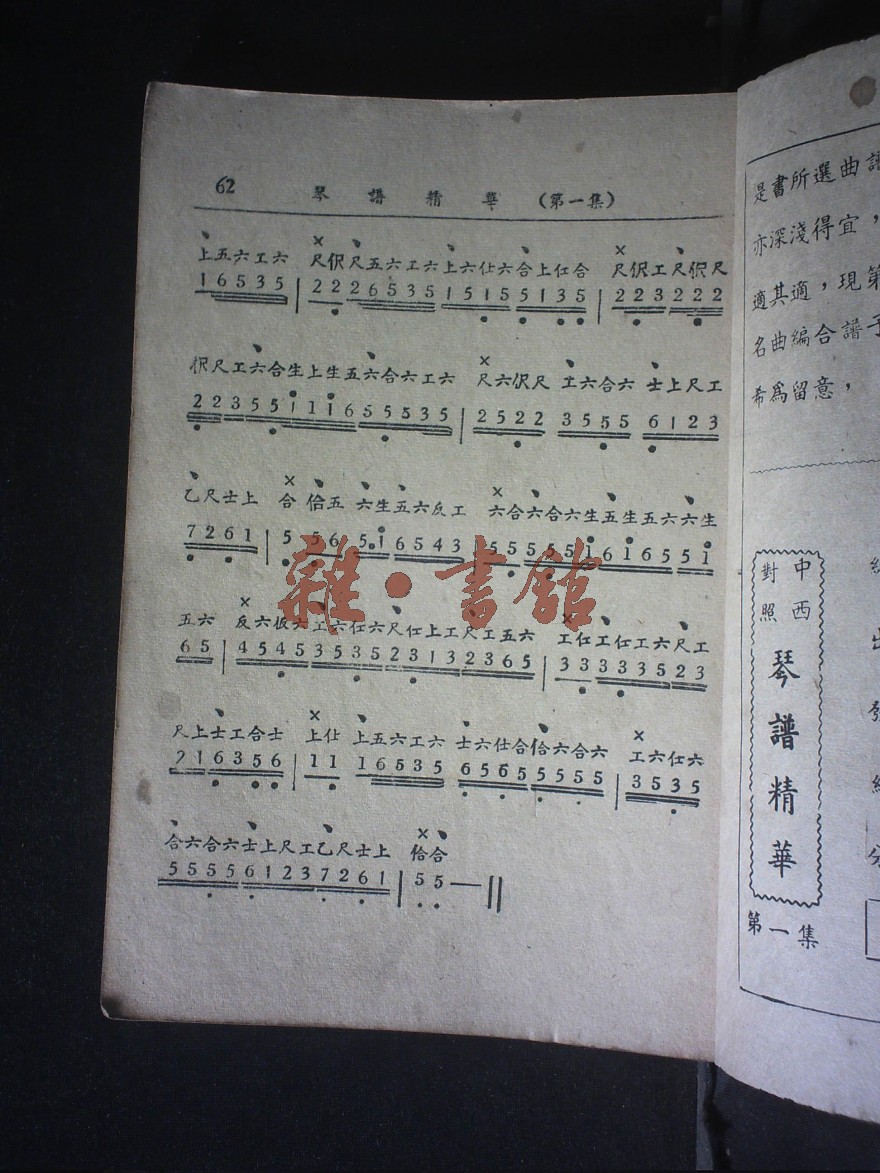 62 琴譜精華(第一集)
上五六工六 尺伬尺五六工六上六仕六合上仕合 尺伬工尺伬尺
1 6 5 3 5 | 2 2 2 6 5 3 5 1 5 1 5 5 1 3 5 | 2 2 3 2 2 2
伬尺工六合生上生五六合六工六 尺六伬尺 工六合六 士上尺工
2 2 3 5 5 1 1 1 6 5 5 5 3 5 | 2 5 2 2 3 5 5 5 6 1 2 3
乙尺士上 合 佮五 六生五六反工 六合六合六生五生五六六生
7 2 6 1 | 5 5 6 5 1 6 5 4 3 5 5 5 5 5 1 6 1 6 5 5 1
五六 反六 六工六仕六尺仕上工尺工五六 工仜工仜工六尺工
6 5 | 4 5 4 5 3 5 3 5 2 3 1 3 2 3 6 5 | 3 3 3 3 3 5 2 3
尺上士工合士 上仩 上五六工六 士六仕合佮六合六 工六仕六
2 1 6 3 5 6 | 1 1 1 6 5 3 5 6 5 6 5 5 5 5 5 | 3 5 3 5
合六合六士上尺工乙尺士上 佮合
5 5 5 5 6 1 2 3 7 2 6 1 | 5 5 — ||
雜·書館
是書所選曲譜
亦深淺得宜，
適其適，現第
名曲編合譜子
希爲留意，
中西
對照
琴譜精華
第一集